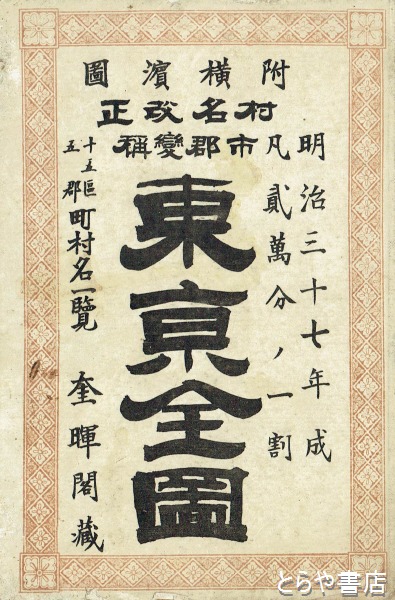 附橫濱圖
村名改正
市郡變稱
明治三十七年成
凡貳萬分ノ一割
東京全圖
十五區
五郡
町村名一覽
奎暉閣藏
とらや書店